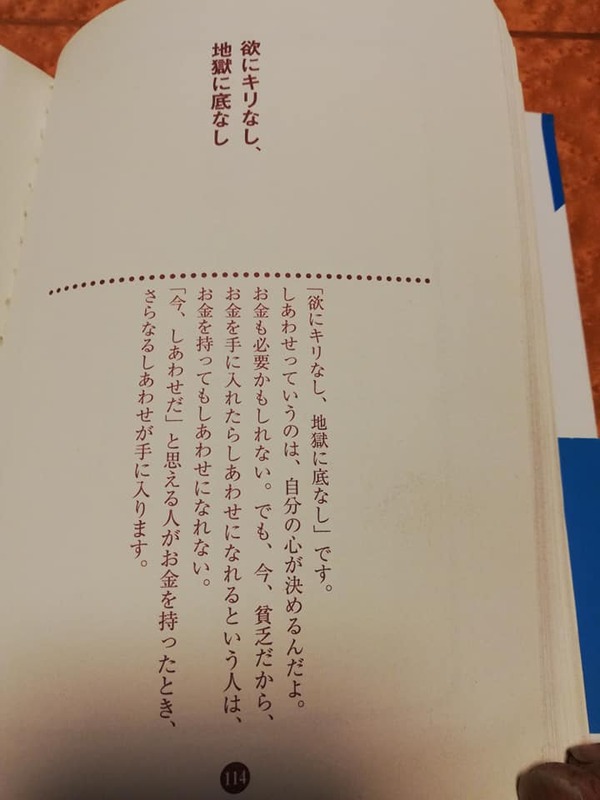 欲にキリなし、
地獄に底なし
「欲にキリなし、地獄に底なし」です。
しあわせっていうのは、自分の心が決めるんだよ。
お金も必要かもしれない。でも、今、貧乏だから、
お金を手に入れたらしあわせになれるという人は、
お金を持ってもしあわせになれない。
「今、しあわせだ」と思える人がお金を持ったとき、
さらなるしあわせが手に入ります。
114